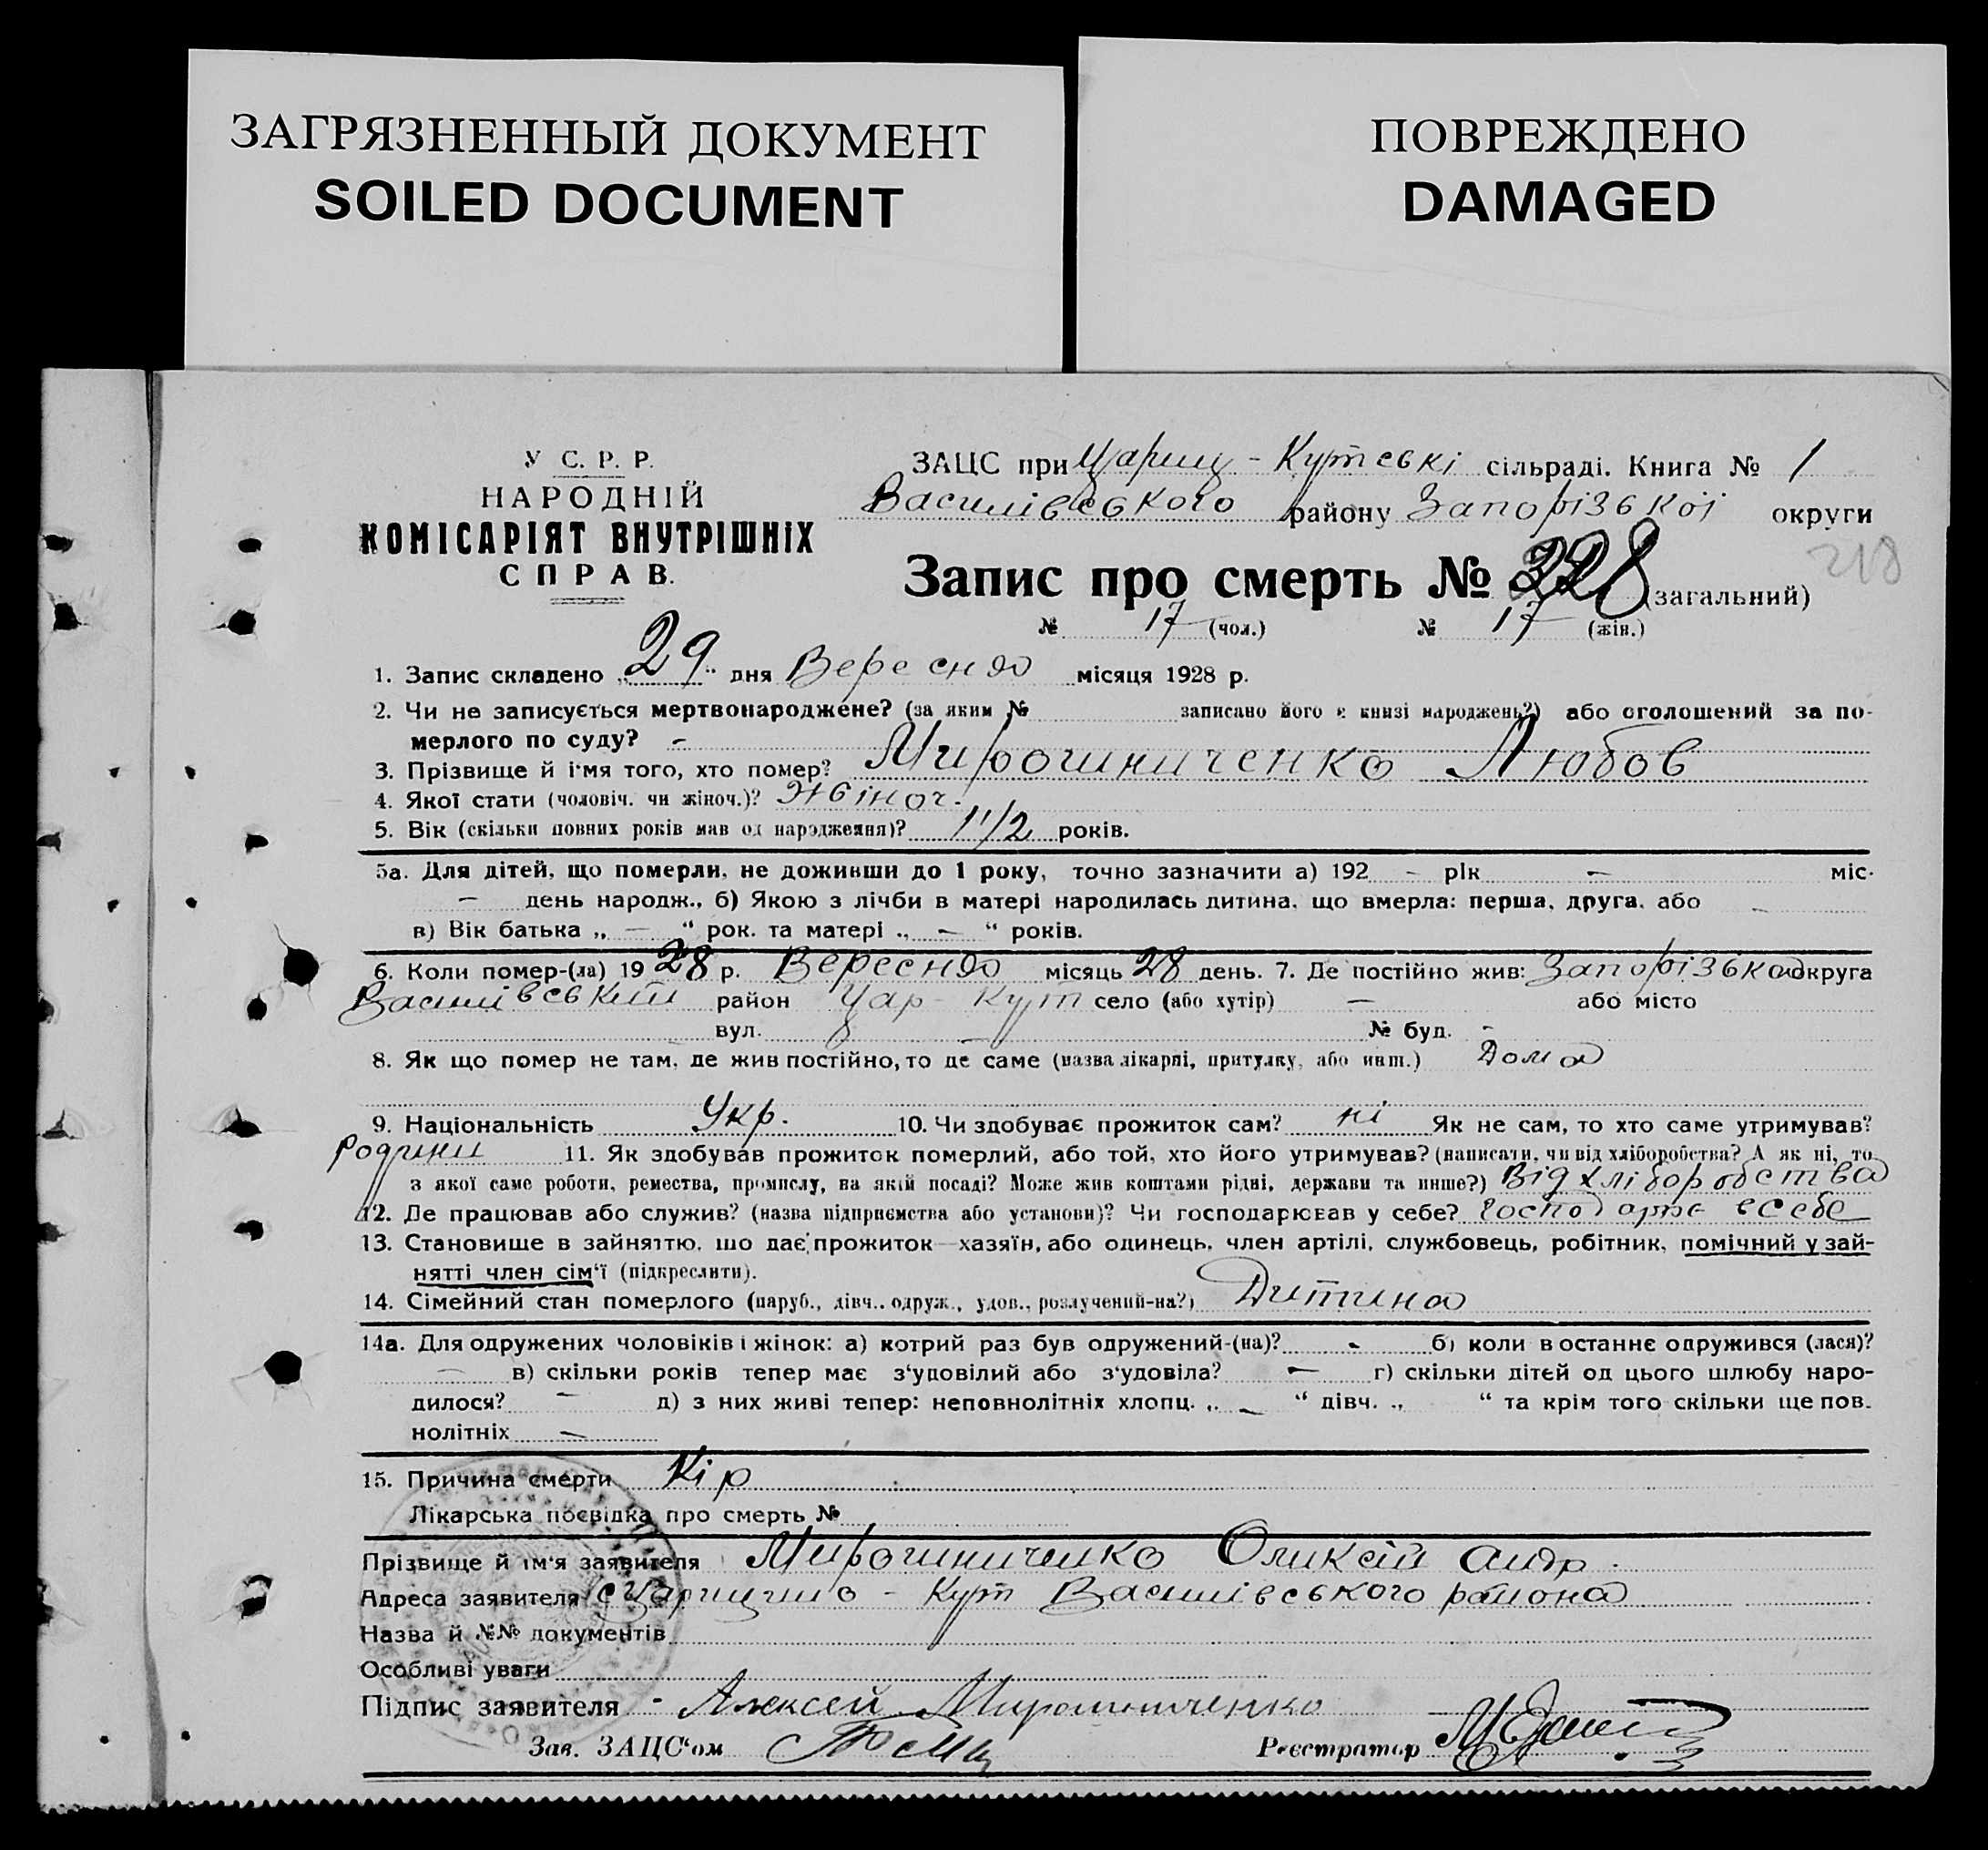 ЗАГРЯЗНЕННЫЙ ДОКУМЕНТ
SOILED DOCUMENT
ПОВРЕЖДЕНО
DAMAGED
У С. Р. Р.
НАРОДНІЙ
КОМІСАРІЯТ ВНУТРІШНІХ
СПРАВ.
ЗАЦС при Цариц-Кутські сільраді. Книга № 1
Василівського району Запорізької округи
Запис про смерть № 328 (загальний) 218
№ 17 (чол.) № 17 (жін.)
1. Запис складено „29" дня Вересня місяця 1928 р.
2. Чи не записується мертвонароджене? (за яким № записано його в книзі народжень?) або оголошений за по-
мерлого по суду? -
3. Прізвище й ім'я того, хто помер? Мирошниченко Любов
4. Якої стати (чоловіч. чи жіноч.)? Жіноч.
5. Вік (скільки повних років мав од народження)? 1 1/2 років.
5а. Для дітей, що померли, не доживши до 1 року, точно зазначити а) 192 - рік - міс.
- день народж., б) Якою з лічби в матері народилась дитина, що вмерла: перша, друга, або -
в) Вік батька „ - " рок. та матері „ - " років.
6. Коли помер-(ла) 1928 р. Вересня місяць 28 день. 7. Де постійно жив: Запорізька округа
Василівський район Цар-Кут село (або хутір) - або місто
вул. - № буд. -
8. Як що помер не там, де жив постійно, то де саме (назва лікарні, притулку, або инш.) Дома
9. Національність Укр. 10. Чи здобуває прожиток сам? ні Як не сам, то хто саме утримував?
Родини 11. Як здобував прожиток померлий, або той, хто його утримував? (написати, чи від хліборобства? А як ні, то
з якої саме роботи, ремества, промислу, на якій посаді? Може жив коштами рідні, держави та инше?) Від хліборобства
12. Де працював або служив? (назва підприємства або установи)? Чи господарював у себе? Господарює в себе
13. Становище в зайняттю, що дає прожиток—хазяїн, або одинець, член артілі, службовець, робітник, помічний у зай-
нятті член сім'ї (підкреслити).
14. Сімейний стан померлого (паруб., дівч., одруж., удов., розлучений-на?) Дитина
14а. Для одружених чоловіків і жінок: а) котрий раз був одружений-(на)? - б) коли в останнє одружився (лася)?
- в) скільки років тепер має з'удовілий або з'удовіла? - г) скільки дітей од цього шлюбу наро-
дилося? - д) з них живі тепер: неповнолітніх хлопц. „ - " дівч. „ " та крім того скільки ще пов.
нолітніх -
15. Причина смерти Кір
Лікарська посвідка про смерть №
Прізвище й ім'я заявителя Мирошниченко Оликсій Андр.
Адреса заявителя с Царицино-Кут Василівського района
Назва й №№ документів
Особливі уваги
Підпис заявителя - Алексей Мирошниченко
Зав. ЗАЦС'ом
Реєстратор